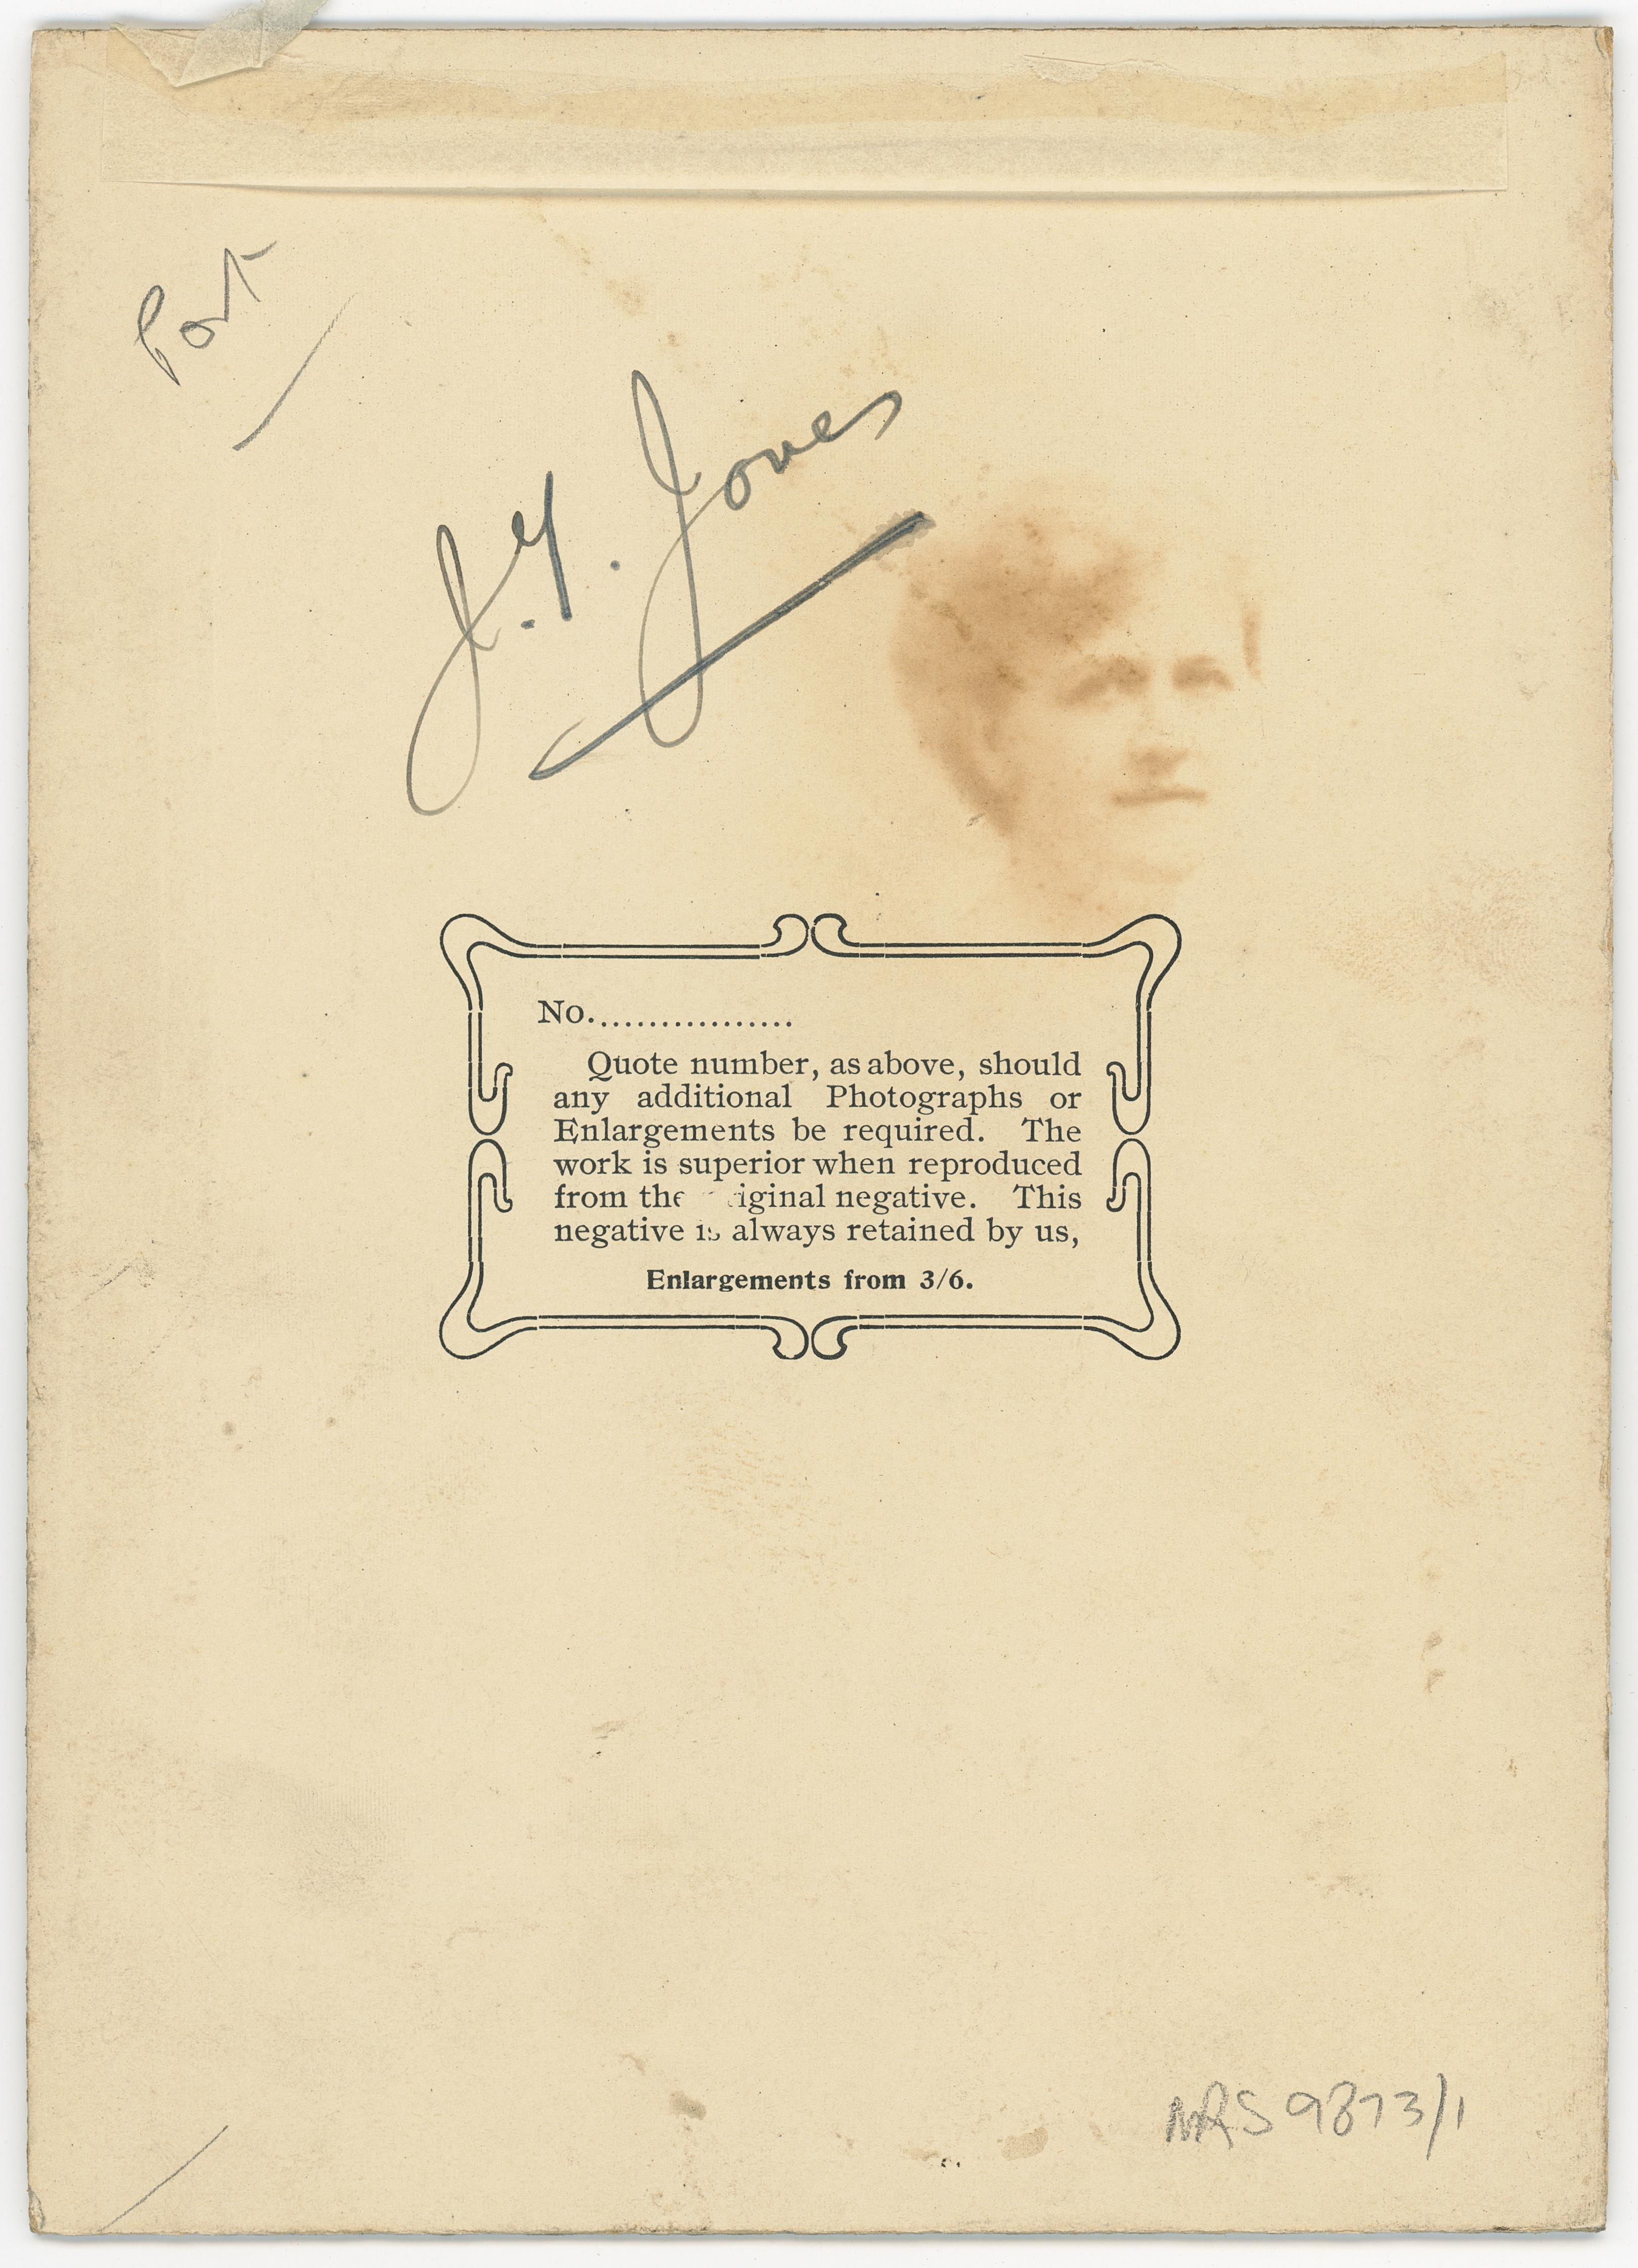 Port
J. Y. Jones
No.................
Quote number, as above, should
any additional Photographs or
Enlargements be required. The
work is superior when reproduced
from the iginal negative. This
negative is always retained by us,
Enlargements from 3/6.
NRS 9873/1